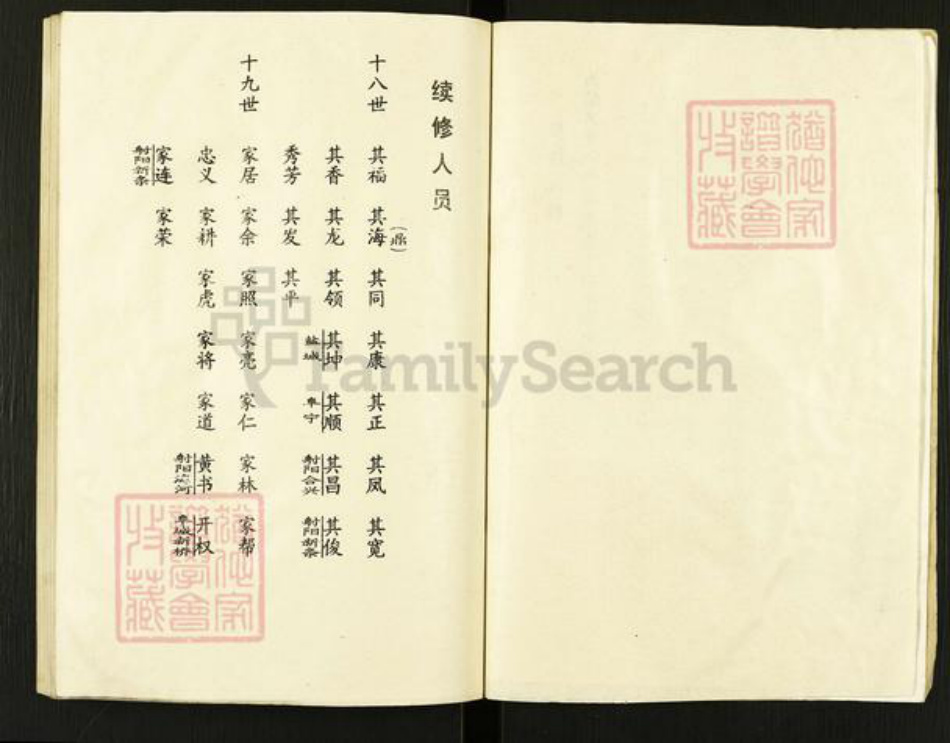 续修人员
十八世 其福 其海(鼎) 其同 其康 其正 其凤 其宽
其香 其龙 其领 其坤 盐城 其顺 阜宁 其昌 射阳合兴 其俊 射阳新条
秀芳 其发 其平
十九世 家居 家余 家照 家亮 家仁 家林 家帮
忠义 家耕 家虎 家将 家道 黄书 射阳 开权
家连 射阳新条 家荣
FamilySearch
譜學會
收藏
譜學會
收藏